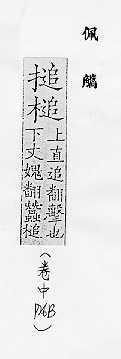 佩觿
搥槌
上直追翻擊也
下丈媿翻蠶槌
(卷中 )